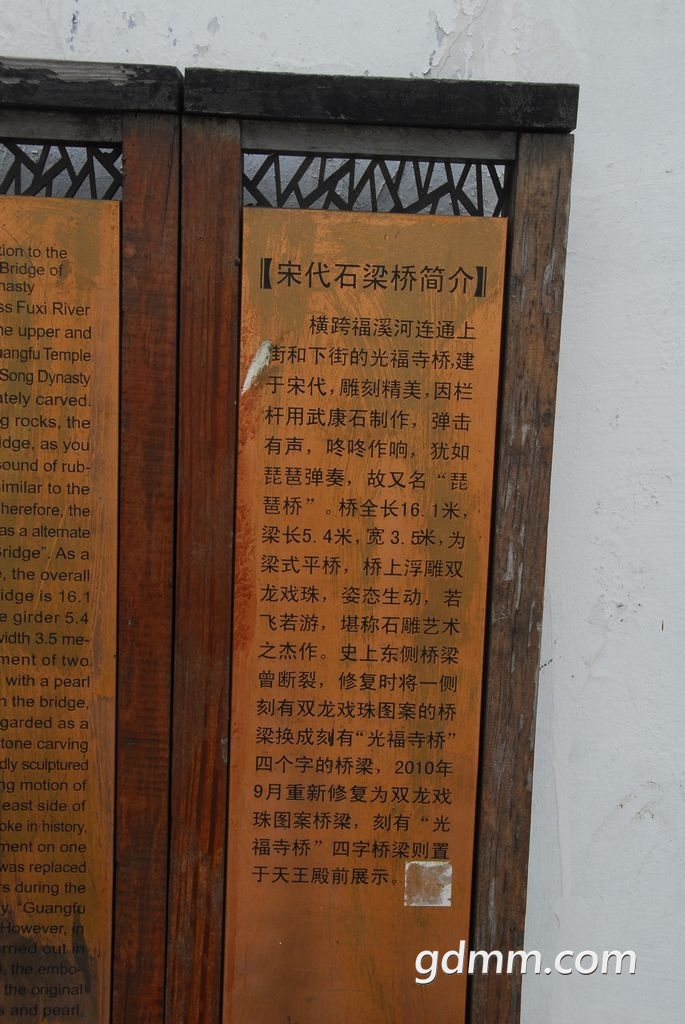 tion to the
Bridge of
nasty
ss Fuxi River
he upper and
uangfu Temple
Song Dynasty
ately carved.
g rocks, the
idge, as you
sound of rub-
similar to the
herefore, the
as a alternate
Bridge". As a
, the overall
idge is 16.1
e girder 5.4
vidth 3.5 me-
ment of two
with a pearl
n the bridge,
garded as a
tone carving
dly sculptured
ng motion of
east side of
oke in history.
ment on one
was replaced
rs during the
y, "Guangfu
However, in
arried out in
, the embo-
the original
s and pearl,
【宋代石梁桥简介】
横跨福溪河连通上
街和下街的光福寺桥,建
于宋代,雕刻精美,因栏
杆用武康石制作，弹击
有声，咚咚作响，犹如
琵琶弹奏，故又名“琵
琶桥”。桥全长16.1米,
梁长5.4米,宽3.5米,为
梁式平桥，桥上浮雕双
龙戏珠，姿态生动，若
飞若游，堪称石雕艺术
之杰作。史上东侧桥梁
曾断裂，修复时将一侧
刻有双龙戏珠图案的桥
梁换成刻有“光福寺桥”
四个字的桥梁，2010年
9月重新修复为双龙戏
珠图案桥梁，刻有“光
福寺桥”四字桥梁则置
于天王殿前展示。
gdmm.com